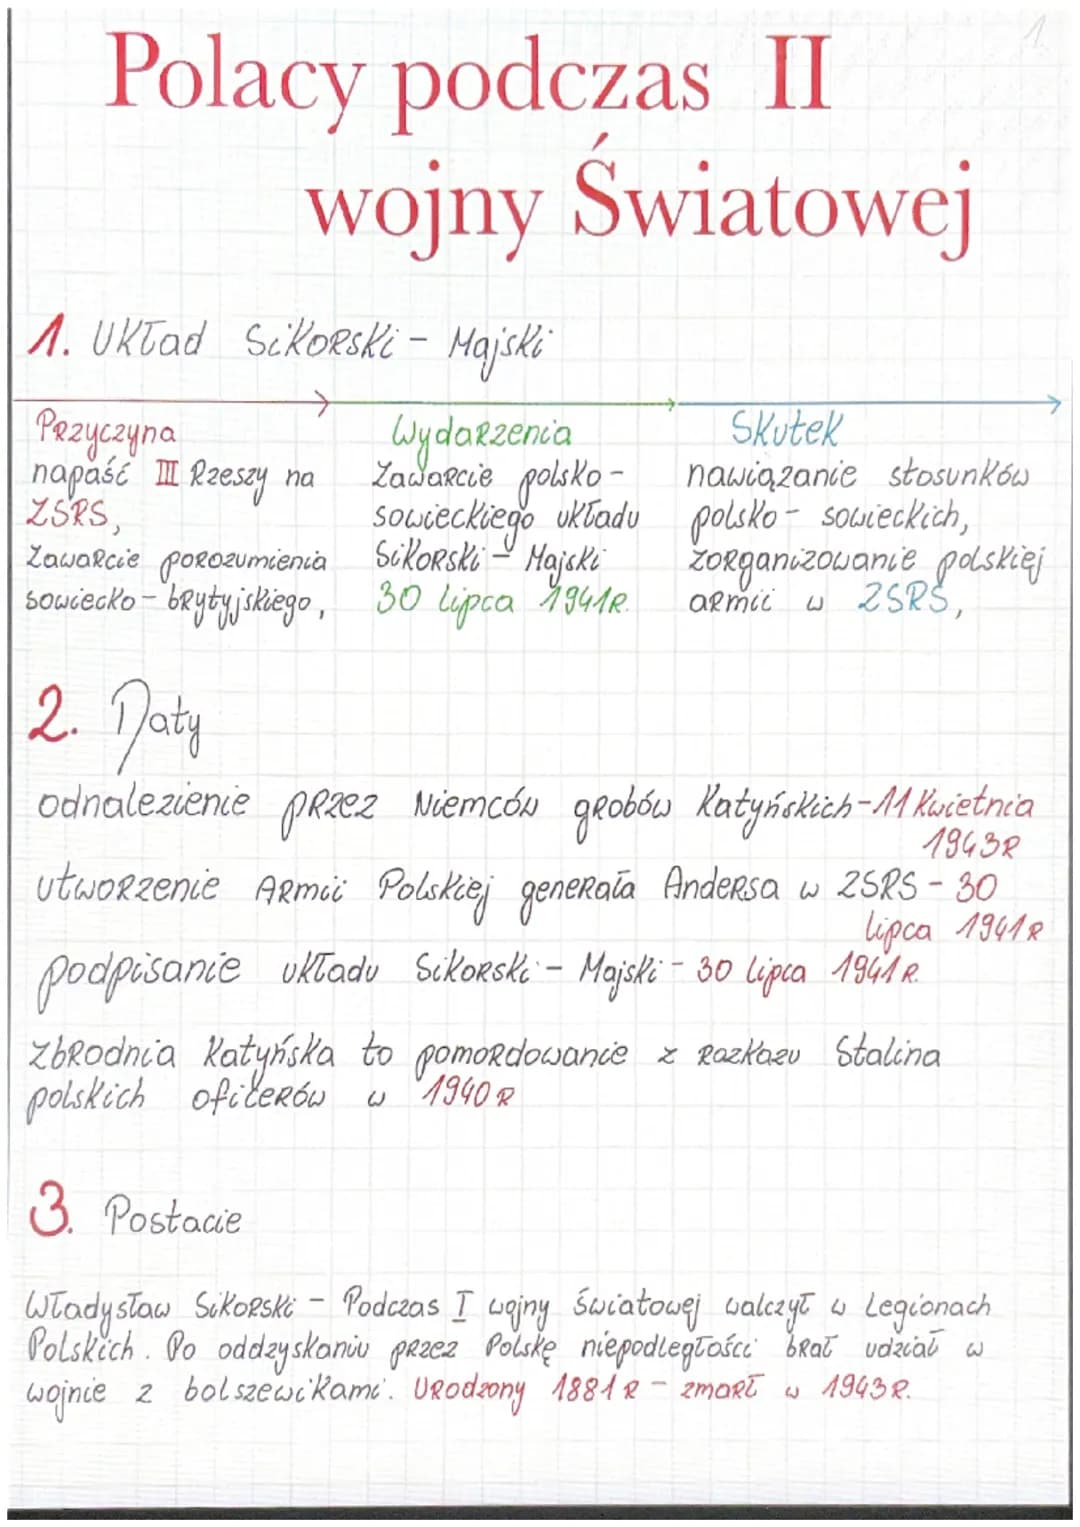 1
Polacy podczas II
wojny Światowej
1. Układ Sikorski - Majski
Przyczyna
napaść III Rzeszy na
ZSRS,
Zawarcie porozumienia
sowiecko - brytyjskiego,
Wydarzenia
Zawarcie polsko -
sowieckiego układu
Sikorski - Majski
30 lipca 1941r.
Skutek
nawiązanie stosunków
polsko - sowieckich,
zorganizowanie polskiej
armii w ZSRS,
2. Daty
odnalezienie przez Niemców grobów Katyńskich - 11 Kwietnia
1943r
utworzenie Armii Polskiej generała Andersa w ZSRS - 30
lipca 1941r
podpisanie układu Sikorski - Majski - 30 lipca 1941r.
zbrodnia Katyńska to pomordowanie z rozkazu Stalina
polskich oficerów w 1940r
3. Postacie
Władysław Sikorski - Podczas I wojny światowej walczył w Legionach
Polskich. Po oddzyskaniu przez Polskę niepodległości brał udział w
wojnie z bolszewikami. Urodzony 1881r - zmarł w 1943r.